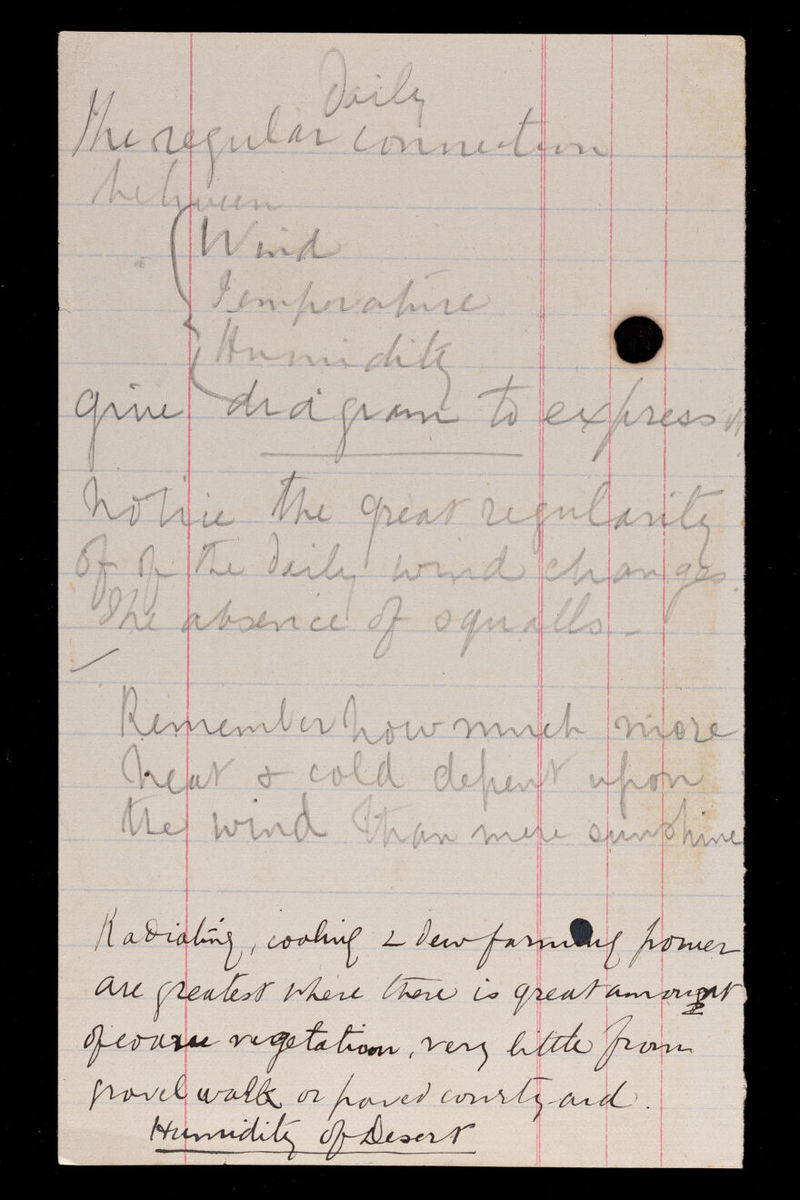 Daily
The regular connection
between
Wind
Temperature
Humidity
give diagram to express it
Notice the great regularity
of of the daily wind changes.
The absence of squalls -
Remember how much more
heat & cold depent upon
the wind than mere sunshine
Radiating, cooling & dew farming power
are greatest where there is great amount
of coarse vegetation, very little from
gravel walk or paved courtyard.
Humidity of Desert